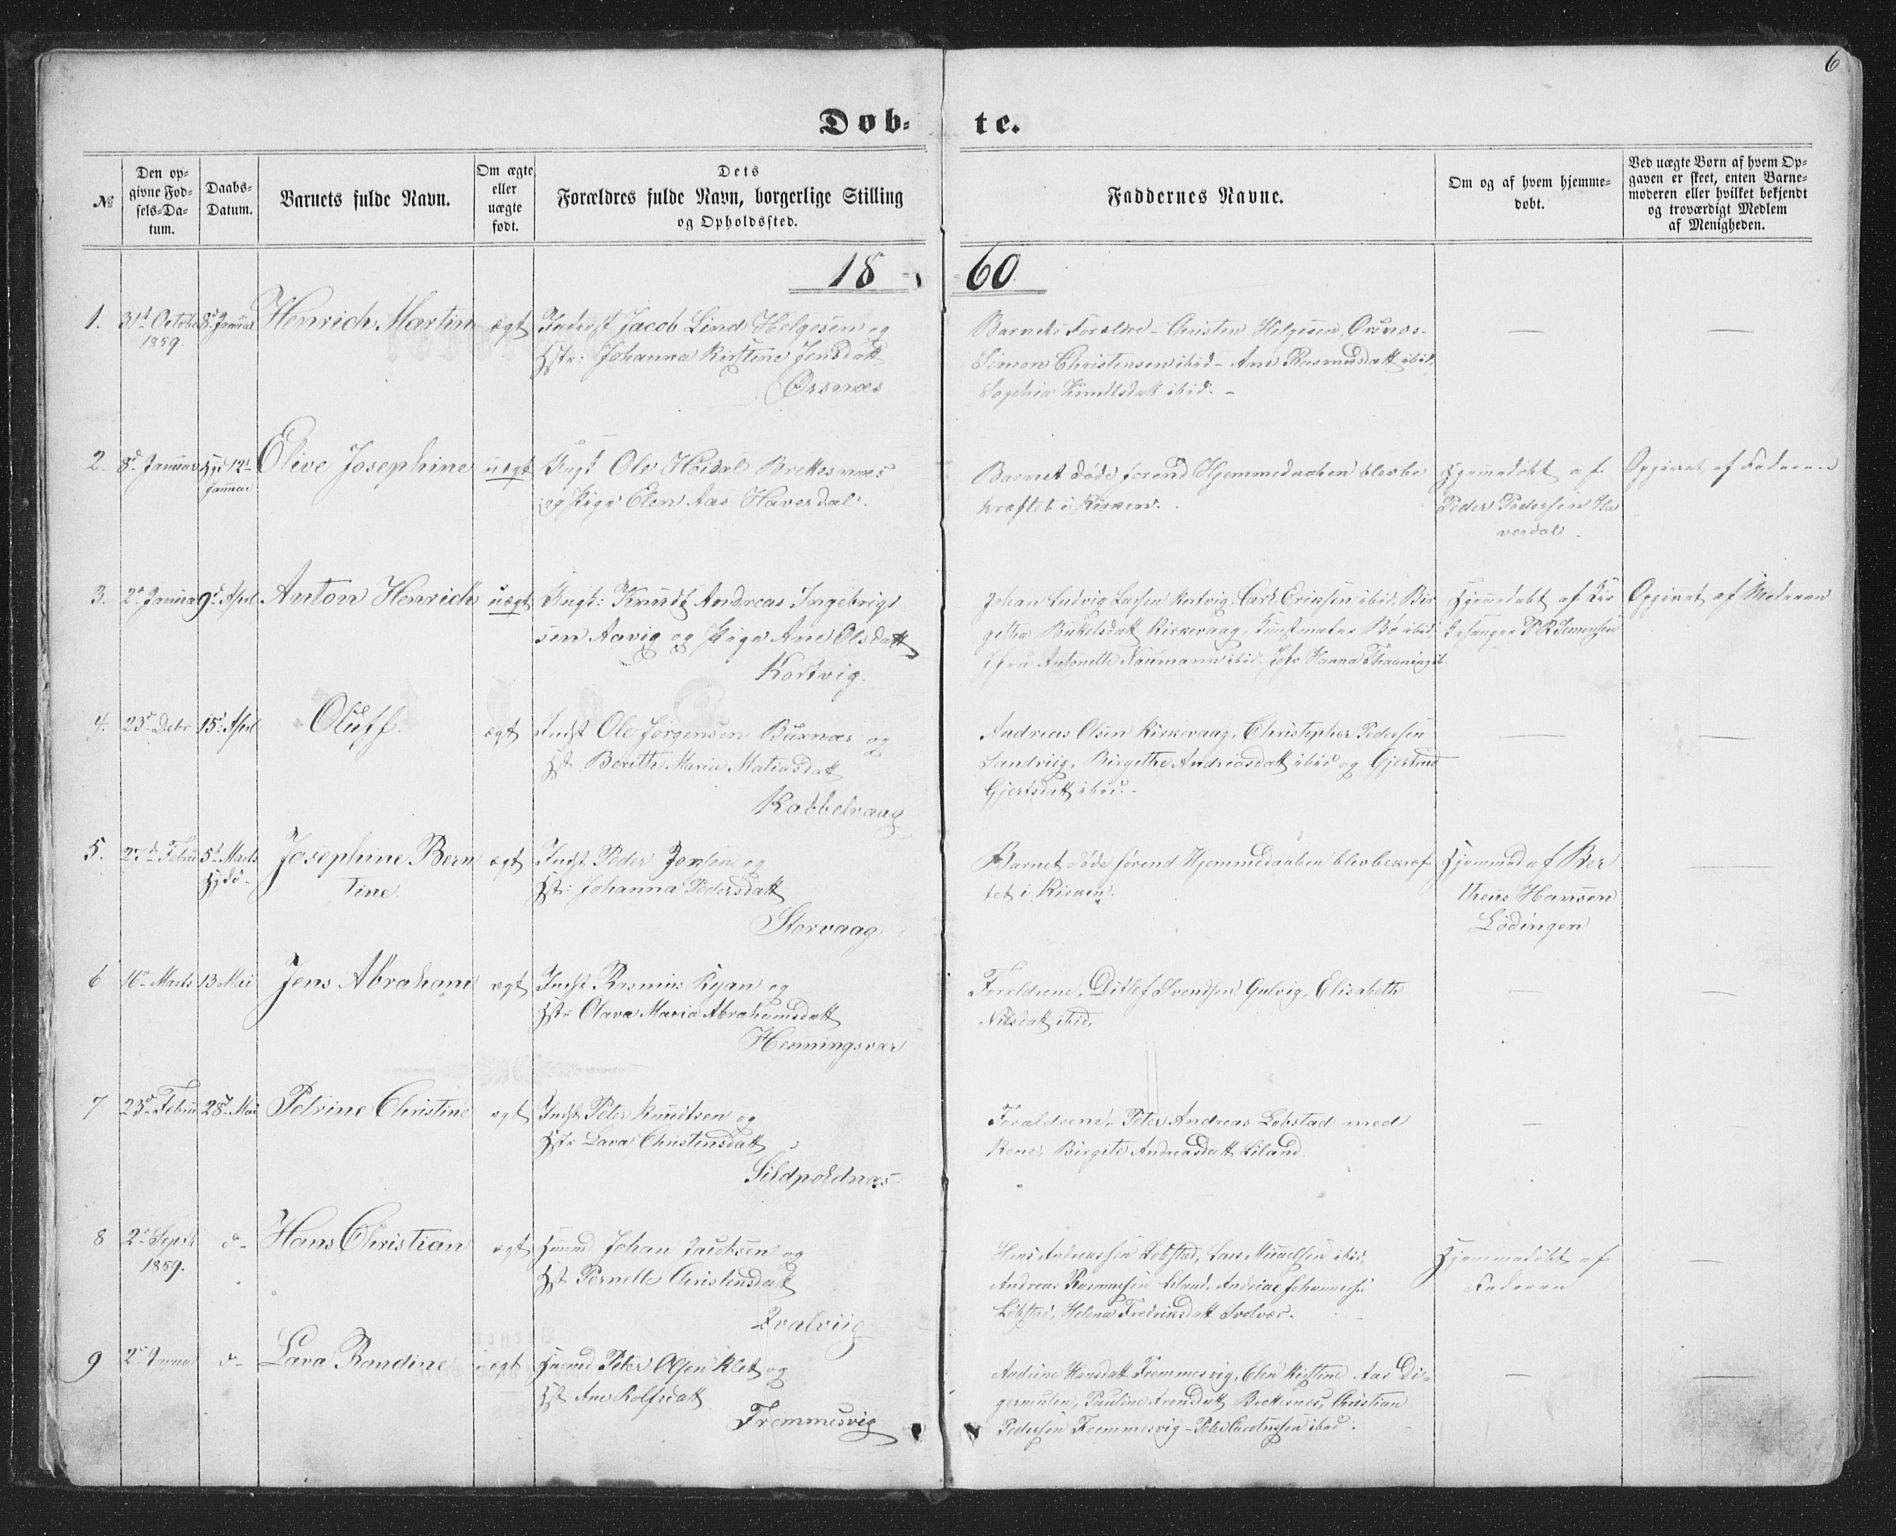 6
Døb- te.
№
Den op-
givne Fød-
sels-Da-
tum.
Daabs-
Datum.
Barnets fulde Navn.
Om ægte
eller
uægte
født.
Dets
Forældres fulde Navn, borgerlige Stilling
og Opholdssted.
Faddernes Navne.
Om og af hvem hjemme-
døbt.
Ved uægte Børn af hvem Op-
gaven er skeet, enten Barne-
moderen eller hvilket bekjendt
og troværdigt Medlem
af Menigheden.
18 - 60
1. 31d Octobr 8d Januar Henrich Martin ægt Inderst Jacob Lind Helgesen og
1859.
Hstr: Johanna Kirstine Jensdatt
Ørsnæs
Barnets Forældre - Christen Helgesen Ørsnæs-
Simon Christensen ibid - Ane Rasmusdatt ibid,
Sophia Knudtsdatt ibid. -
2. 8d Januar Hjd 12t Elive Josephine uægt Ungk Ole Høidal Brekesnæs
Januar
og Pige Elen Aas Haversdal.
Barnet døde førend Hjemmedaaben blev be
kræftet i Kirken.
Hjemmedøbt af
Peder Pedersen Ha
verdal.
Opgivet af Faderen
3. 2d Januar 9d April Anton Henrich uægt Ungk: Knudt Andreas Ingebrigt
sen Aavig og Pige Ane Olsdatt
Kortvig.
Johan Ludvig Larsen Kortvig, Carl Eriksen ibid, Bir
githa Kirkevaag, Bø ibid,
Jfru Antonette Naumann ibid, Hanna
Hjemmedøbt af Kir
kesanger Simonsen
Opgivet af Moderen
4. 23d Debr 15d April Oluff. ægt Indst Ole Jørgensen Buxnæs og
Hst Bereth Maria Matiasdatt
Kabbelvaag
Andreas Olsen Kirkevaag, Christopher Pedersen
Sandviig, Birgithe Andreasdatt ibid og Gjertrud
Gjertsdatt ibid. -
5. 27d Febru 5d Marts Josephine Bern ægt Indst Peder og
Hjdø. tine. Hstr: Johanna Pedersdatt
Storvaag.
Barnet døde førend Hjemmedaaben blev bekræf
tet i Kirken.
Hjemmed af Ber
theus Hansen
Lødingen
6 16d Marts 13 Mai Jens Abraham ægt Indst Rasmus Kyan og
Hstr Olava Maria Abrahamsdatt
Henningsvær
Forældrene, Ditlef Svendsen Gulvig, Elisabeth
Nilsdatt ibid.
7 23d Febru 28d Mai Petrine Christine ægt Indst Peter Knudtsen og
Hstr Lava Christensdatt
Sildpoldnæs
Forældrene, Peter Andreas Løbstad med
Kone, Birgite Andreasdatt Liland
8 2d Septb do Hans Christian ægt Huusmd Johan Jacobsen og
1859.
Hst Pernelle Christensdatt
Qvalviig
Hans Andreassen Løbstad, Lars Mikkelsen ibid,
Andreas Rasmussen Liland, Andreas Johannessen
Løbstad, Helena Fredriksdatt Svolvær.
Hjemmedøbt af
Faderen
9 2d Januar do Lava Randine ægt Huusmd Peter Olsen Klet og
Hst Ane Rolfsdatt
Fremmesvig
Andrine Hansdatt Fremmesvig, Elen Kirstine Aas Di-
germulen, Pauline Arendsdatt Brettesnæs, Christian
Pedersen Fremmesvig - Peter ibid.